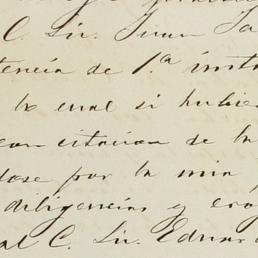 C. Lic. Juan Ja
tencia de 1.ª insta
la cual si hubie
con citacion de la
dose por la mia
diligencias y ero
al C. Lic. Eduar